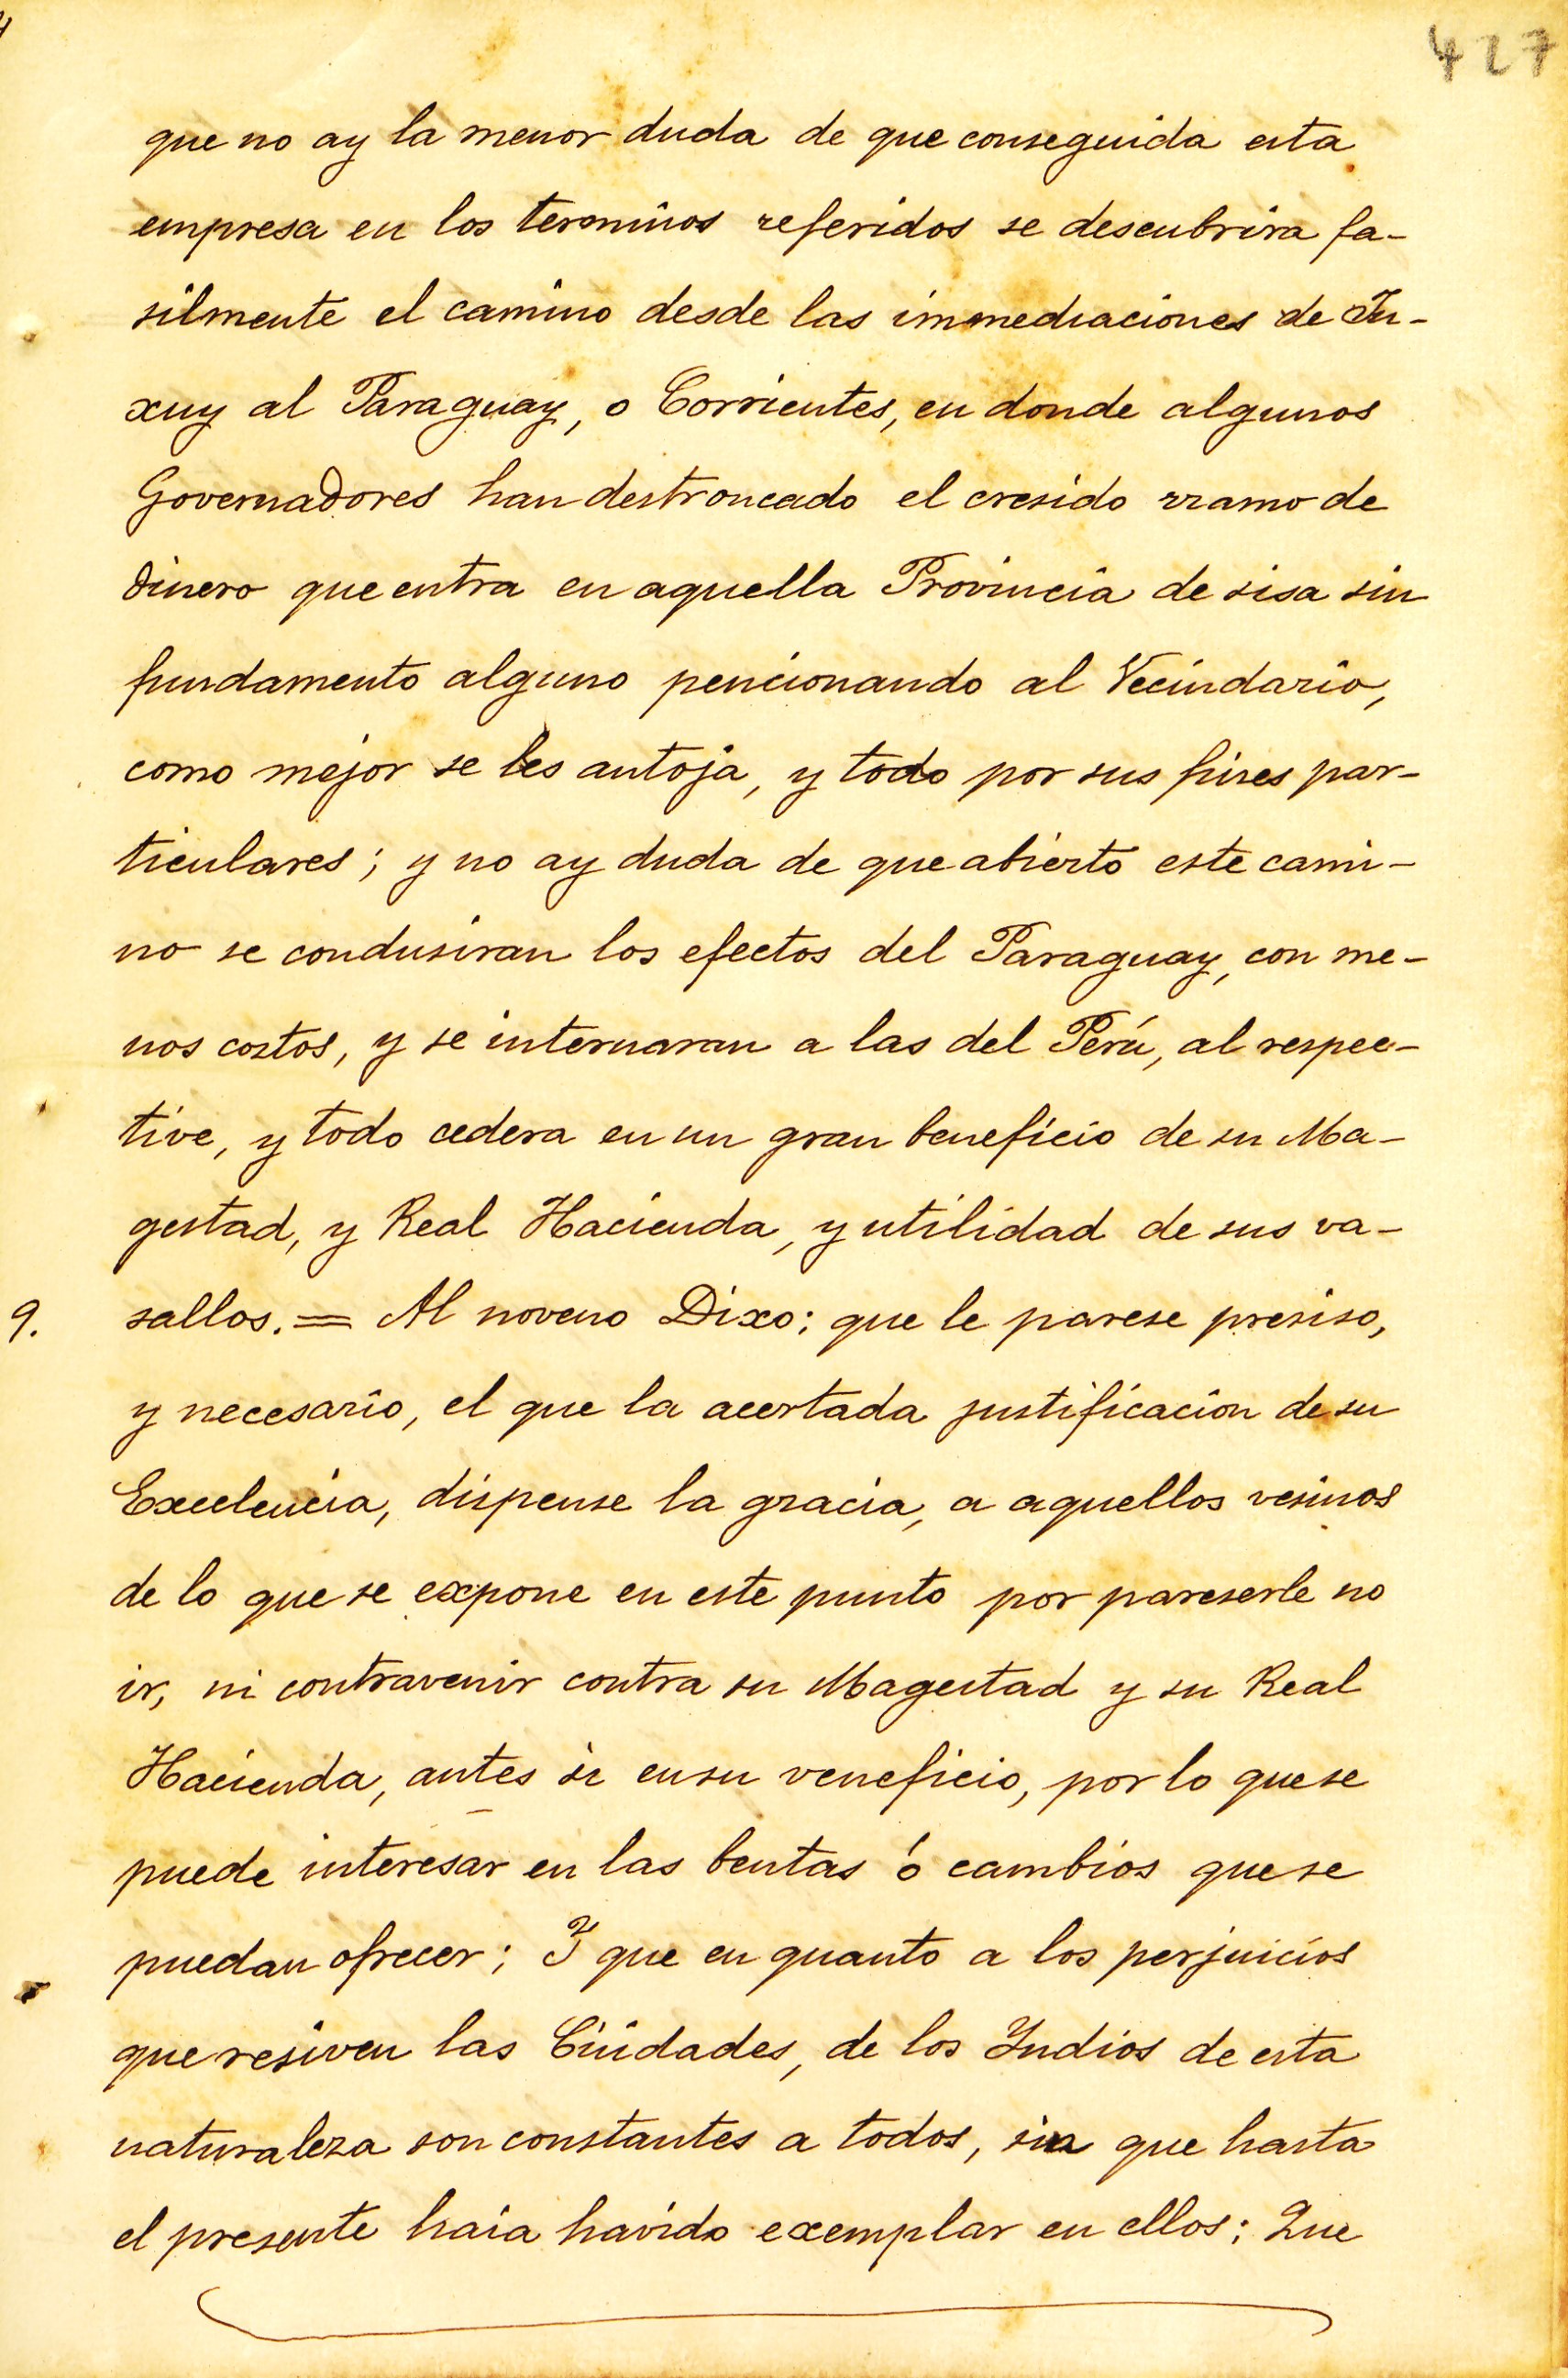 427
que no ay la menor duda de que conseguida esta
empresa en los terminos referidos se descubrira fa-
silmente el camino desde las immediaciones de Ju-
xuy al Paraguay, o Corrientes, en donde algunos
Governadores han destroncado el cresido rramo de
dinero que entra en aquella Provincia de sisa sin
fundamento alguno pencionando al Vecindario,
como mejor se les antoja, y todo por sus fines par-
ticulares; y no ay duda de que abierto este cami-
no se condusiran los efectos del Paraguay, con me-
nos costos, y se internaran a las del Perú, al respec-
tive, y todo cedera en un gran beneficio de su Ma-
gestad, y Real Hacienda, y utilidad de sus va-
9. sallos. = Al noveno Dixo: que le parese presiso,
y necesario, el que la acertada justificacion de su
Excelencia, dispense la gracia, a aquellos vesinos
de lo que se expone en este punto por pareserle no
ir, ni contravenir contra su Magestad y su Real
Hacienda, antes si en su veneficio, por lo que se
puede interesar en las bentas ó cambios que se
puedan ofrecer; Y que en quanto a los perjuicios
que resiven las Ciudades, de los Yndios de esta
naturaleza son constantes a todos, sin que hasta
el presente haia havido exemplar en ellos; Que